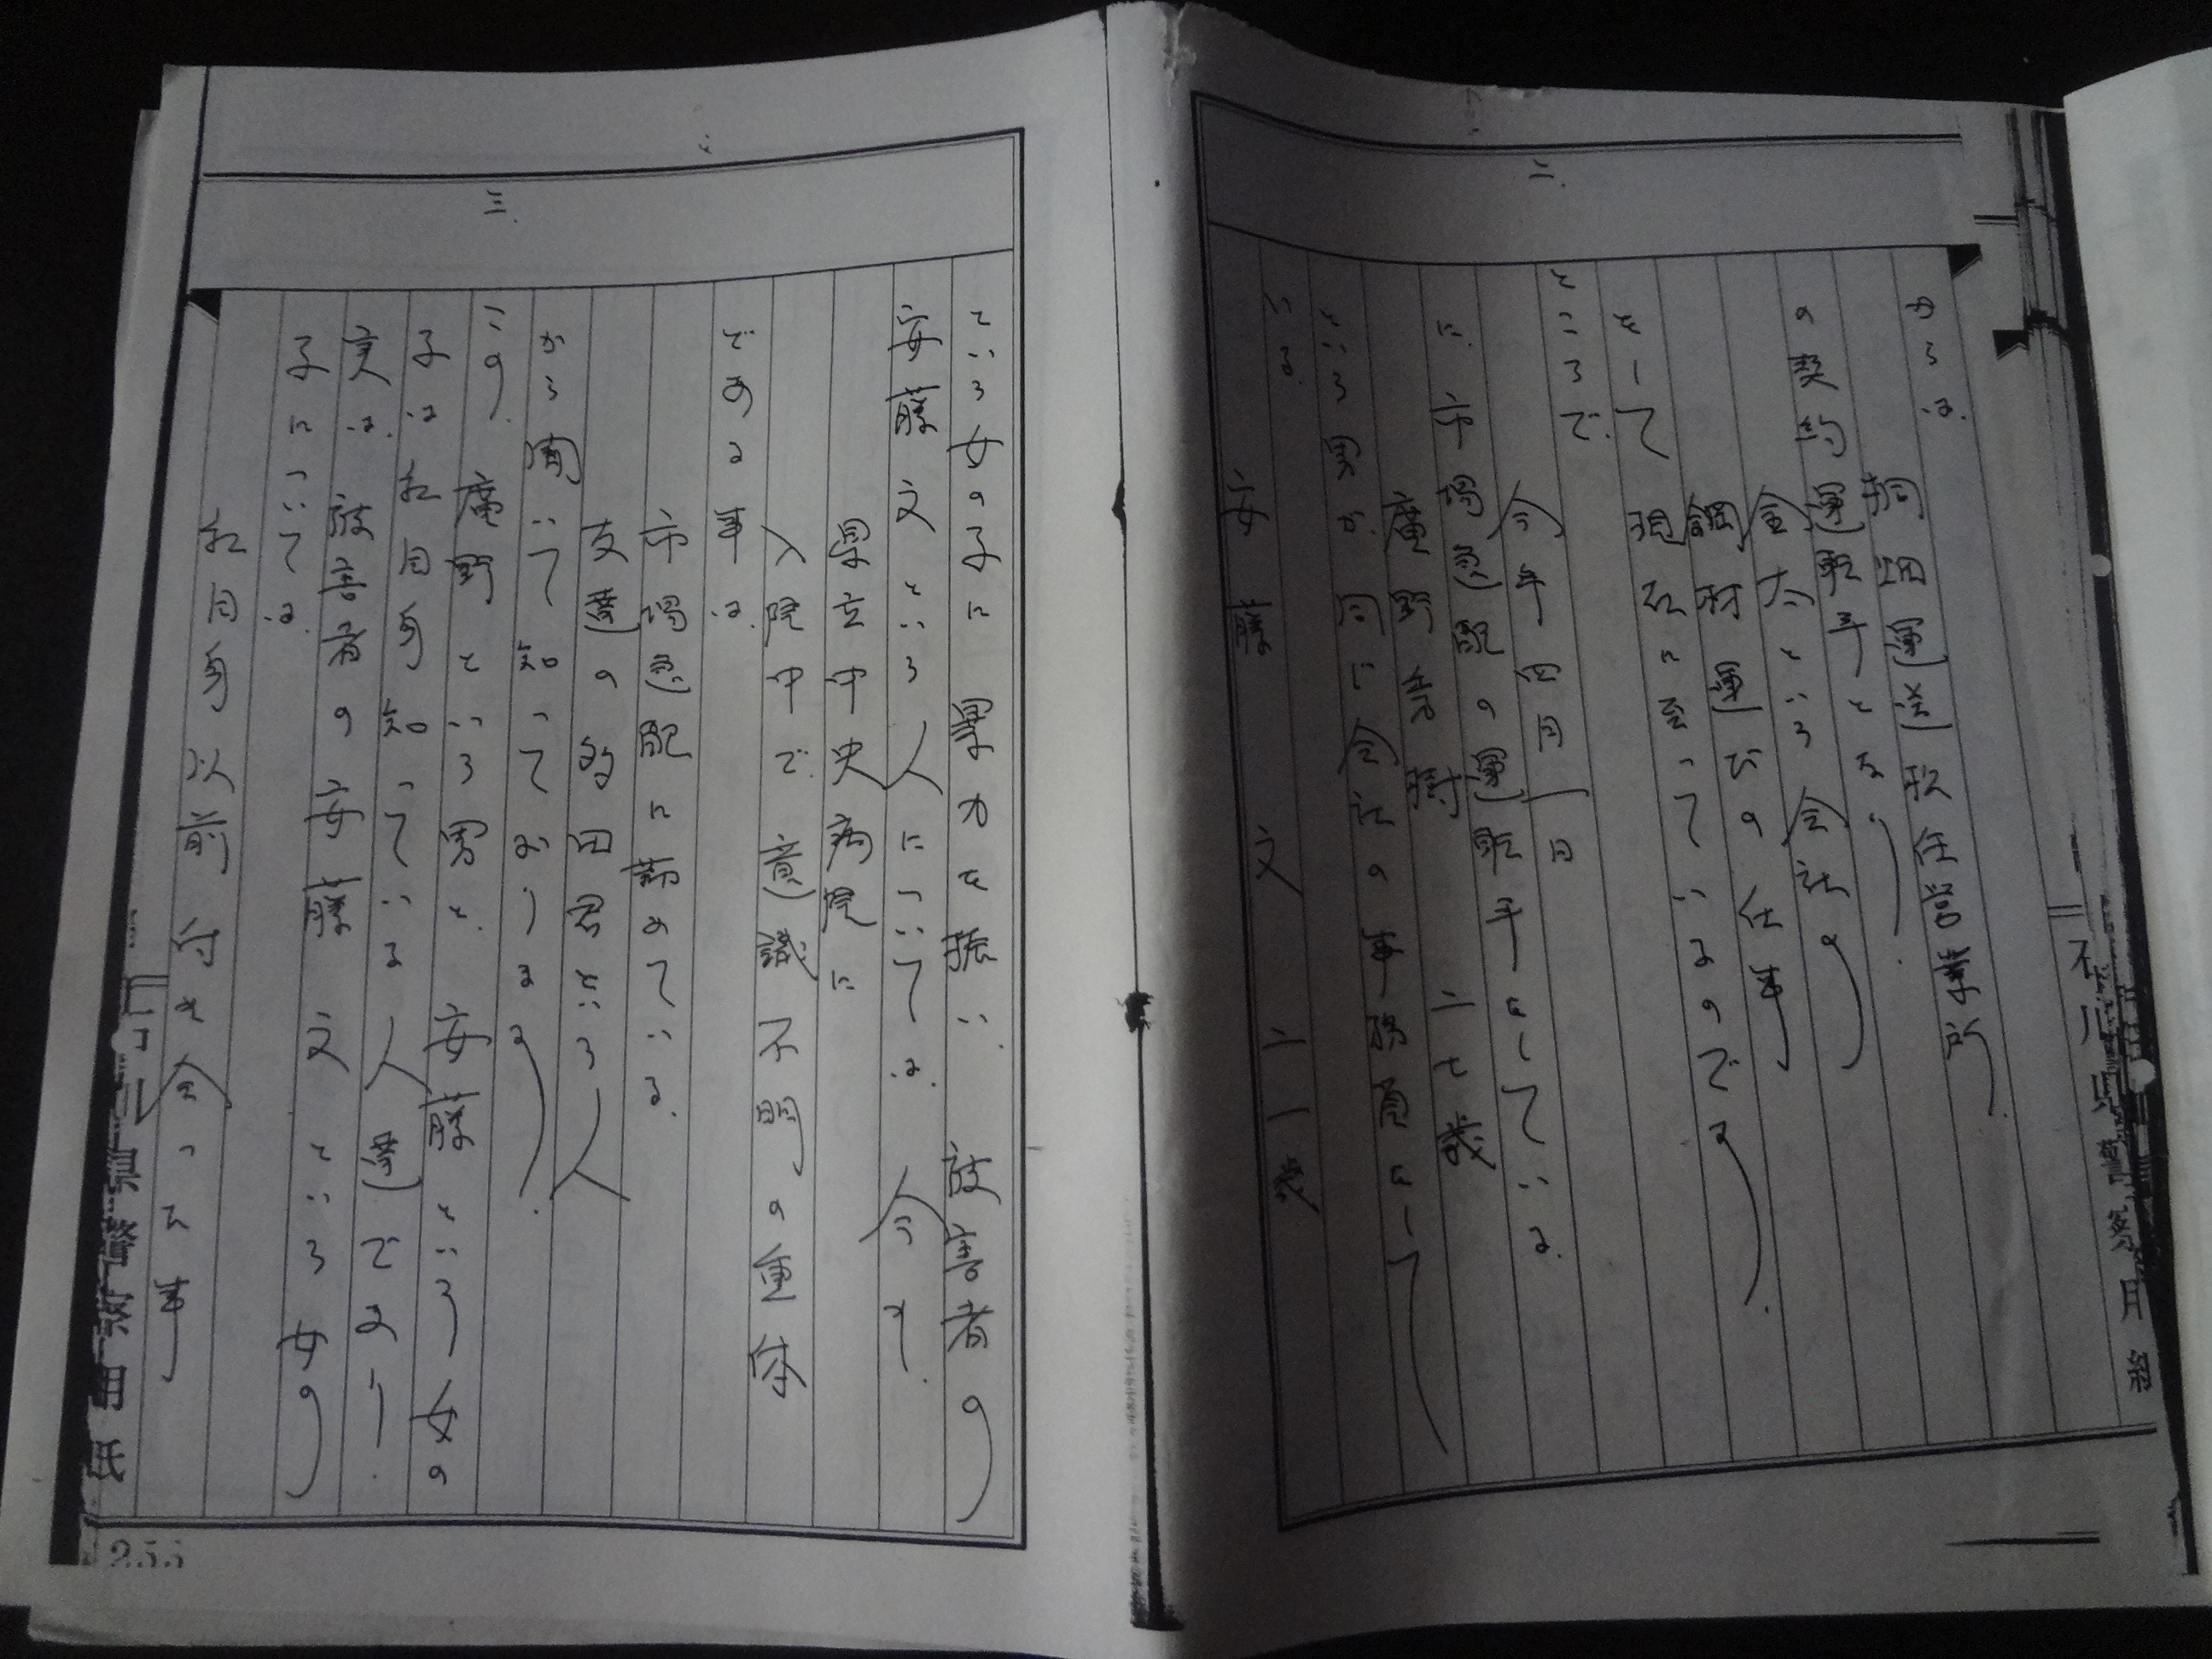 二
からは
桐畑運送 営業所
の契約運転手となり
金太という会社の
鋼材運びの仕事
をして
現在に至っているのです
ところで
今年四月一日
に市場急配の運転手をしている
廣野 二七歳
という男が同じ会社の事務員をして
いる
安藤文 二一歳
三
という女の子に 暴力を振い 被害者の
安藤文という人については 今も
県立中央病院に
入院中で 意識不明の重体
である事は
市場急配に務めている
友達の 田君という人
から聞いて知っております
この 廣野という男と 安藤という女の
子は 私自身知っている人達であり
実は 被害者の安藤 文という女の
子については
私自身以前付き合った事
255